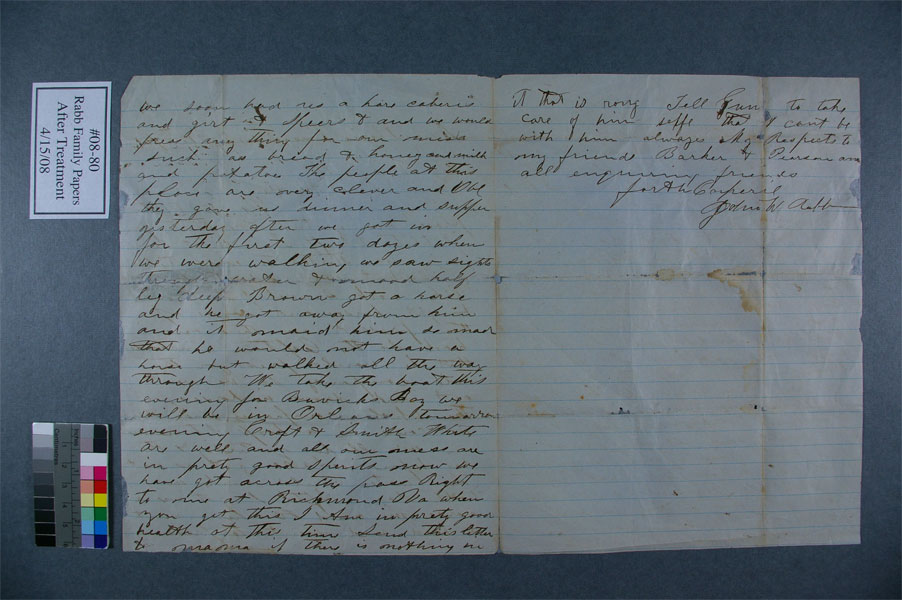 #08-80
Rabb Family Papers
After Treatment
4/15/08
we soon had us a hors caberis
and girt & Speers & and we would
press any thing for our mess
such as bread & honey and milk
and potatoes The people at this
place are very clever and
they gave us dinner and supper
yesterday after we got in
for the first two dayes when
we were walking we saw sights
water & mond half
leg deep Brown got a horse
and he got away from him
and it maid him so mad
that he would not have a
horse but walked all the way
through We take the boat this
evening for Bay we
will be in Orleans tomorrow
evening Croft & Smith White
are well and all our mess are
in prety good Spirits now we
have got across the pass Right
to me at Richmond Va when
you get this I Am in prety good
health at this time Send this letter
to mama if there is nothing in
it that is rong Tell to take
care of him selfe that I cant be
with him always My Respects to
my friends Barker & Pearson and
all enquiring friends
John W. Rabb